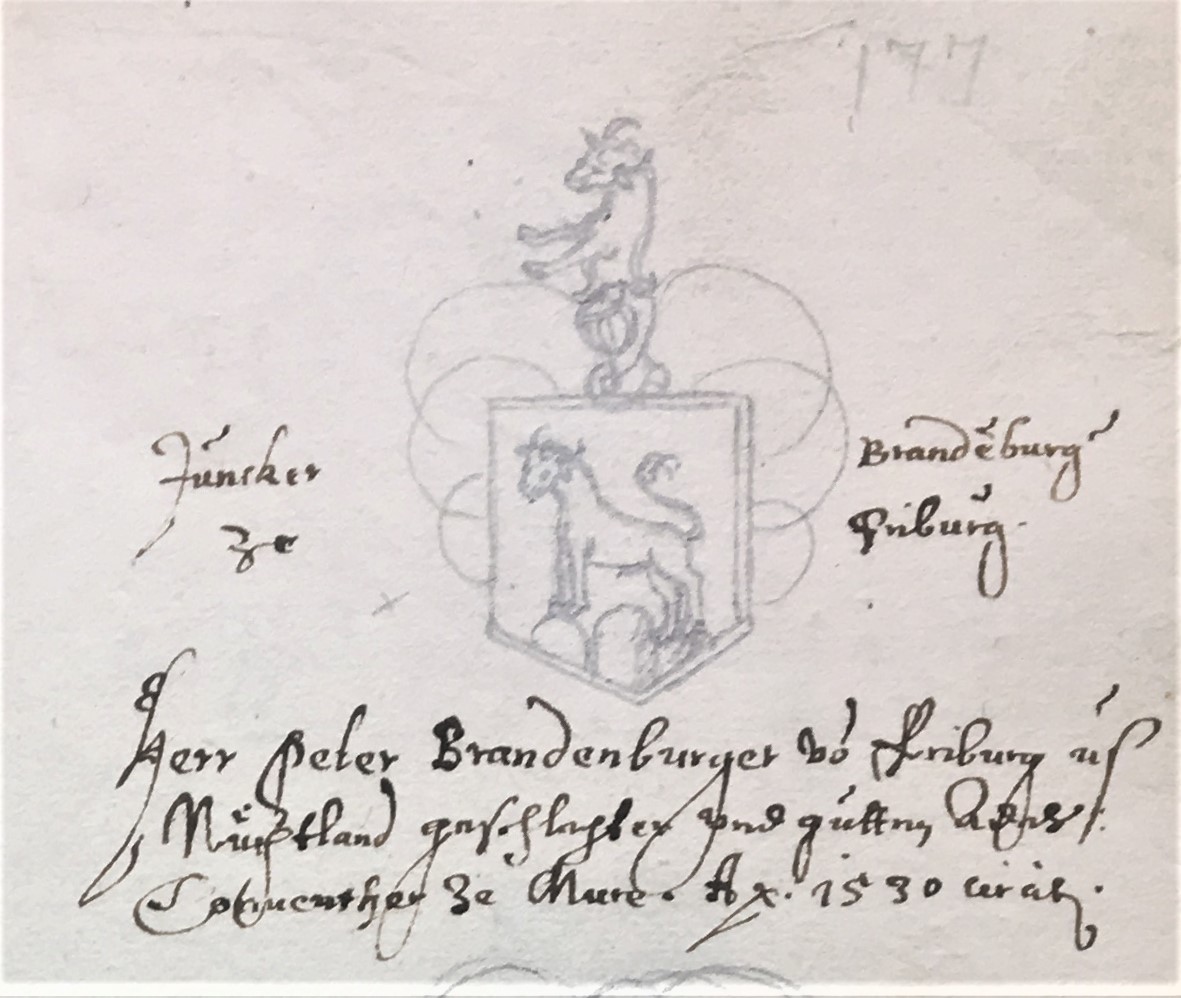 177
Juncker Brandēburg
ze Friburg.
Herr Peter Brandenburger vō Friburg us
Nüchtland geschlachter vnd gutten Adels.
Conventher ze Mure. Ax. 1530